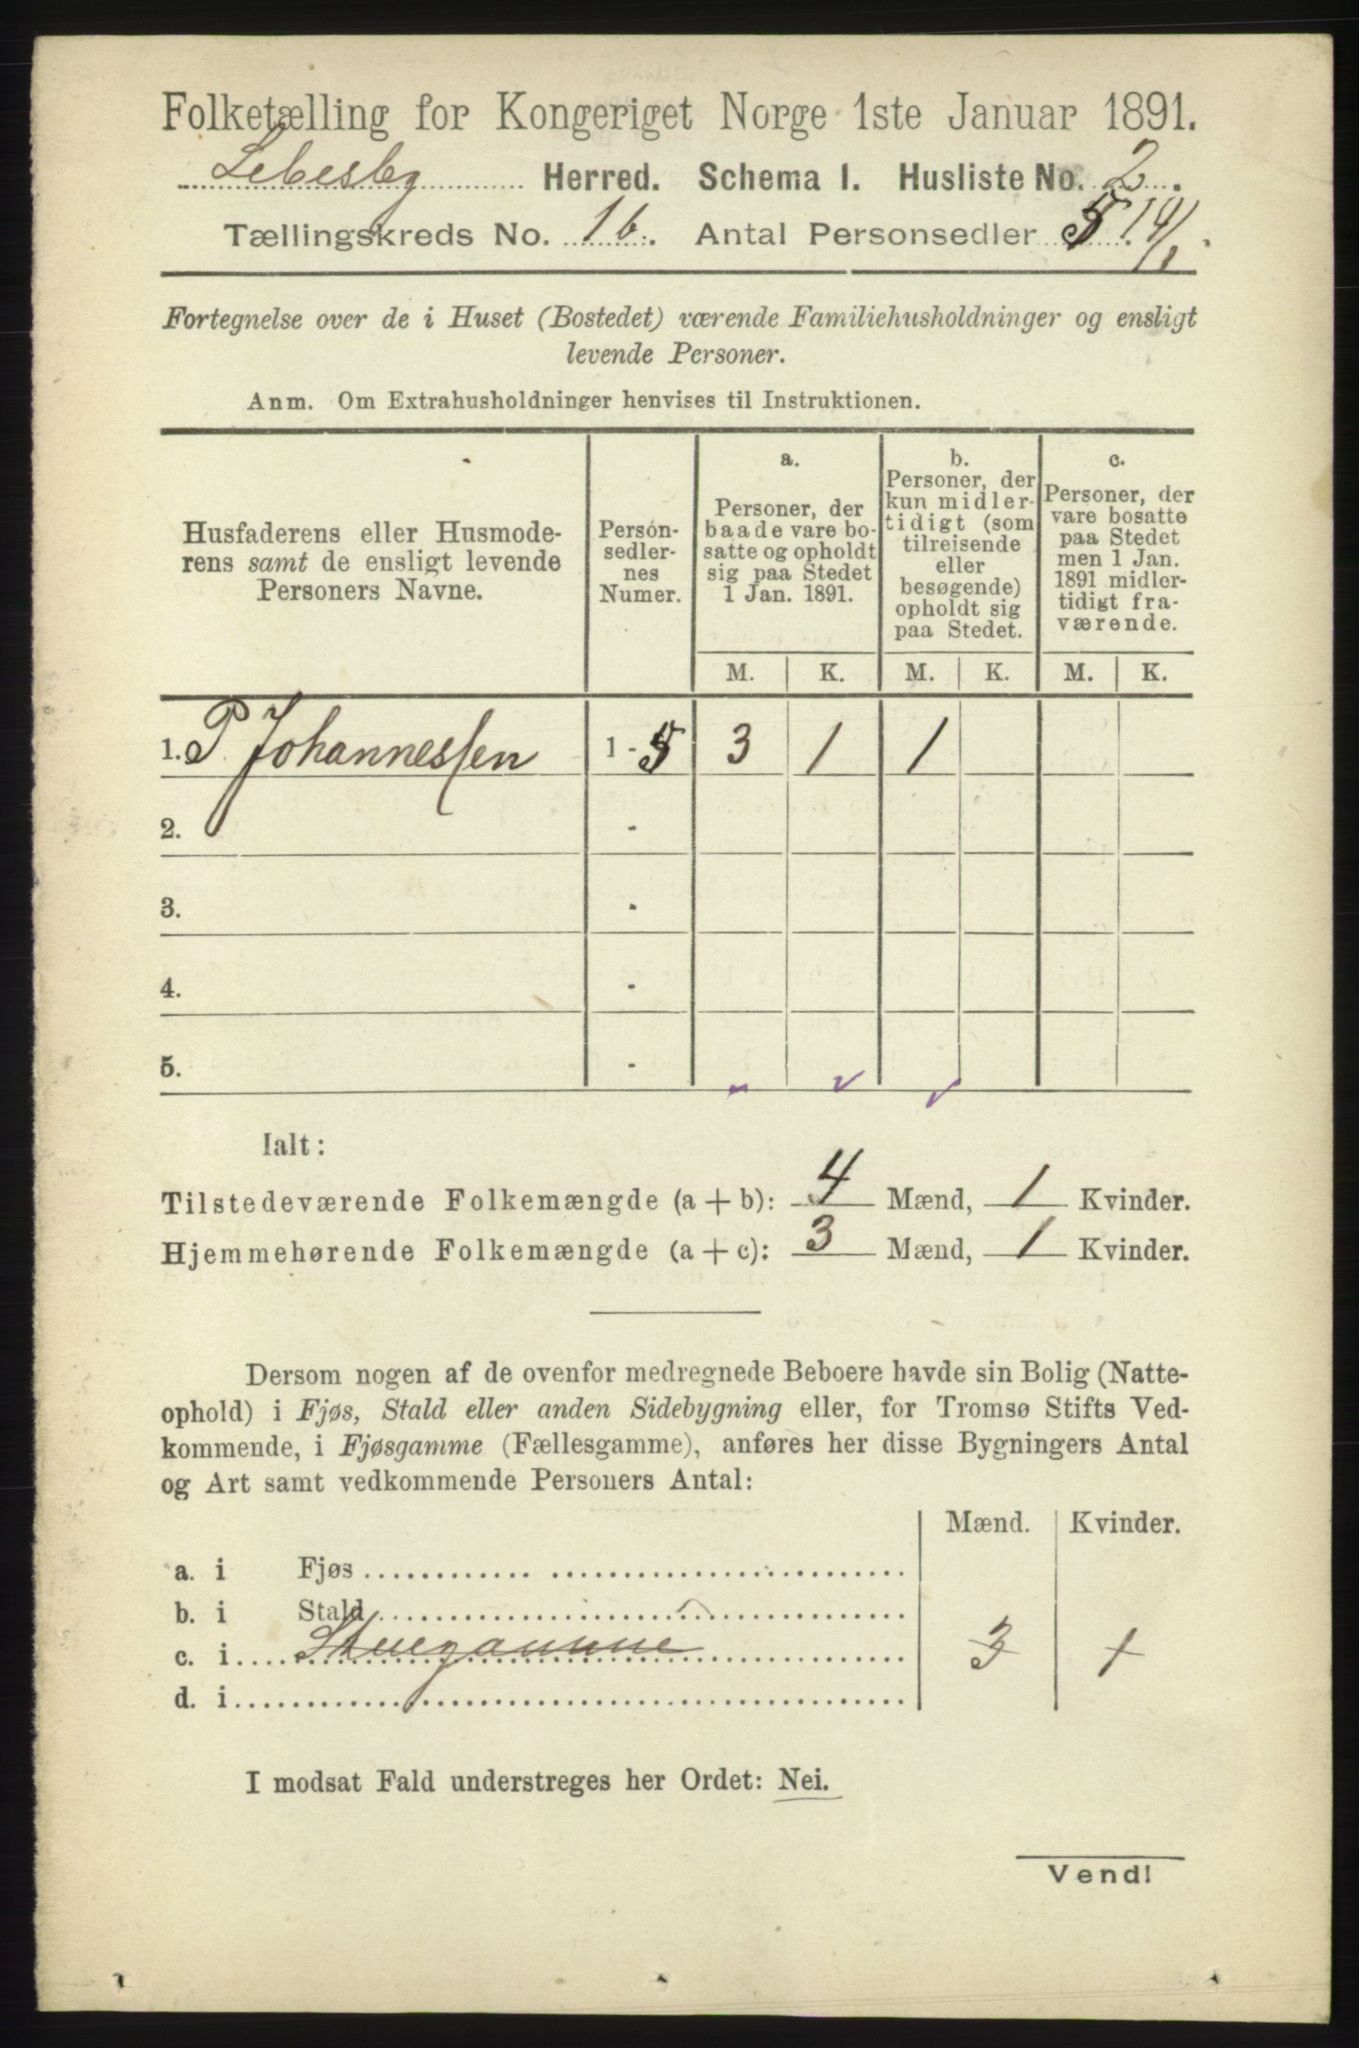 Folketælling for Kongeriget Norge 1ste Januar 1891.
Lebesby Herred. Schema I. Husliste No. 2.
Tællingskreds No. 16. Antal Personsedler 5.
Fortegnelse over de i Huset (Bostedet) værende Familiehusholdninger og ensligt
levende Personer.
Anm. Om Extrahusholdninger henvises til Instruktionen.
Husfaderens eller Husmode-
rens samt de ensligt levende
Personers Navne.
Person-
sedler-
nes
Numer.
a.
Personer, der
baade vare bo-
satte og opholdt
sig paa Stedet
1 Jan. 1891.
b.
Personer, der
kun midler-
tidigt (som
tilreisende
eller
besøgende)
opholdt sig
paa Stedet.
c.
Personer, der
vare bosatte
paa Stedet
men 1 Jan.
1891 midler-
tidigt fra-
værende.
M. K. M. K. M. K.
1. P. Johannessen 1 - 5 3 1 1
2. -
3. -
4. -
5. -
Ialt:
Tilstedeværende Folkemængde (a + b): 4 Mænd, 1 Kvinder.
Hjemmehørende Folkemængde (a + c): 3 Mænd, 1 Kvinder.
Dersom nogen af de ovenfor medregnede Beboere havde sin Bolig (Natte-
ophold) i Fjøs, Stald eller anden Sidebygning eller, for Tromsø Stifts Ved-
kommende, i Fjøsgamme (Fællesgamme), anføres her disse Bygningers Antal
og Art samt vedkommende Personers Antal:
Mænd. Kvinder.
a. i Fjøs
b. i Stald
c. i Stuegamme 3 1
d. i
I modsat Fald understreges her Ordet: Nei.
Vend!